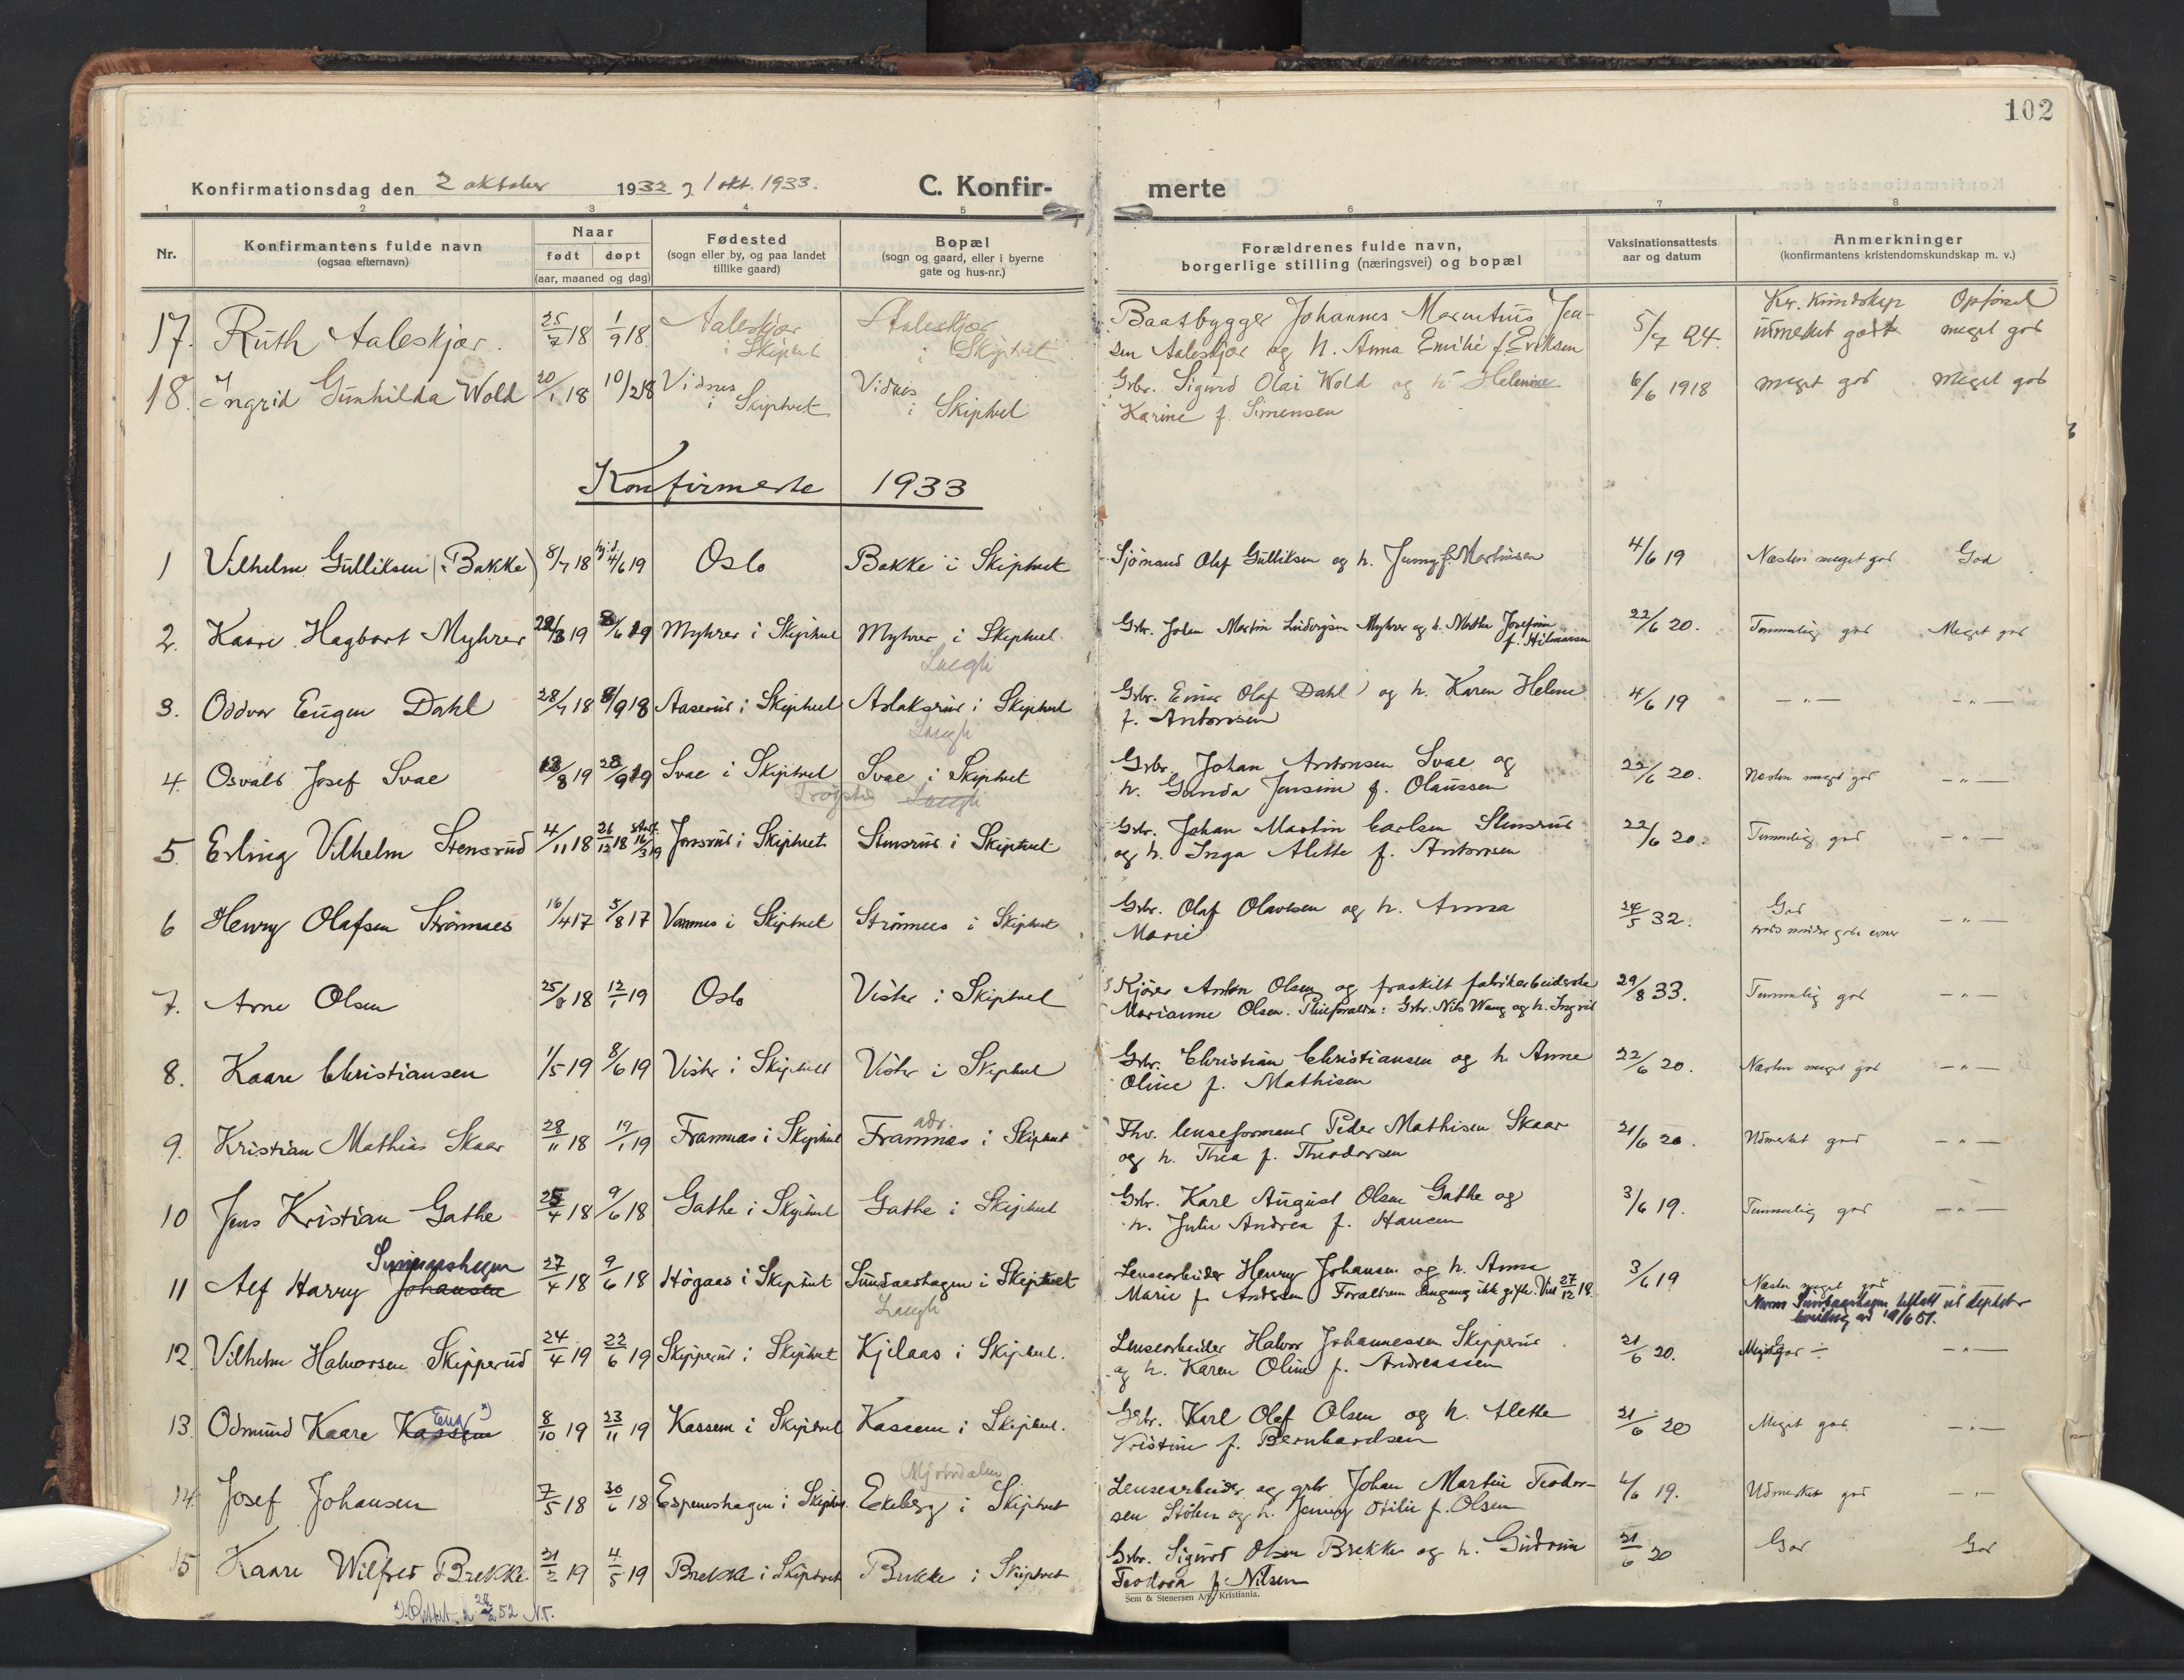 102
Konfirmationsdag den 2 oktober 1932 og 1 okt. 1933. C. Konfir- merte
1 2 3 4 5 6 7 8
Nr. Konfirmantens fulde navn (ogsaa efternavn) Naar født døpt (aar, maaned og dag) Fødested (sogn eller by, og paa landet tillike gaard) Bopæl (sogn og gaard, eller i byerne gate og hus-nr.) Forældrenes fulde navn, borgerlige stilling (næringsvei) og bopæl Vaksinationsattests aar og datum Anmerkninger (konfirmantens kristendomskundskap m. v.)
Kr. kundskap Opførsel
17. Ruth Aaleskjær. 25/7 18 1/9 18. Aaleskjær i Skiptvet Aaleskjær i Skiptvet Baatbygger Johannes Marentius Jen-
sen Aaleskjær og h. Anna Emilie f. Eriksen 5/7 24. utmerket godt meget god
18. Ingrid Gunhilda Wold 20/1 18 10/2 18 Vidnes i Skiptvet Vidnes i Skiptvet Grbr. Sigurd Olai Wold og h. Helenine
Karine f. Simensen 6/6 1918 meget god meget god
Konfirmerte 1933
1 Vilhelm Gulliksen (Bakke) 8/7 18 hj.d. 4/6 19 Oslo Bakke i Skiptvet Sjømand Olaf Gulliksen og h. Jenny f. Martinsen 4/6 19 Næsten meget god God
2. Kaare Hagbart Myhrer 29/3 19 8/6 19 Myhrer i Skiptvet Myhrer i Skiptvet Grbr. Johan Martin Ludvigsen Myhrer og h. Marthe Josefine
f. Hilmarsen 22/6 20. Temmelig god Meget god
Langli
3. Oddvar Eugen Dahl 28/7 18 8/9 18 Aaserud i Skiptvet Aslaksrud i Skiptvet Grbr. Einar Olaf Dahl og h. Karen Helene
f. Antonsen 4/6 19 — " — — " —
Langli
4. Osvald Josef Svae 13/8 19 28/9 19 Svae i Skiptvet Svae i Skiptvet Grbr. Johan Antonsen Svae og
h. Gunda Jensine f. Olaussen 22/6 20. Næsten meget god — " —
Trøgstad Langli
5. Erling Vilhelm Stensrud 4/11 18 26/12 18 stadf. 16/3 19 Jonsrud i Skiptvet Stensrud i Skiptvet Grbr. Johan Martin Carlsen Stensrud
og h. Inga Alette f. Antonsen 22/6 20. Temmelig god — " —
6 Henry Olafsen Strømnes 16/4 17 5/8 17 Vamnes i Skiptvet Strømnes i Skiptvet Grbr. Olaf Olavesen og h. Anna
Marie 24/5 32. God
trods mindre gode evner — " —
7. Arne Olsen 25/8 18 12/1 19 Oslo Vister i Skiptvet Kjører Anton Olsen og fraskilt fabrikarbeiderske
Marianne Olsen. Pleieforældre: Grbr. Nils Wang og h. Ingrid 29/8 33. Temmelig god — " —
8. Kaare Christiansen 1/5 19 8/6 19 Vister i Skiptvet Vister i Skiptvet Grbr. Christian Christiansen og h. Anne
Oline f. Mathisen 22/6 20. Næsten meget god — " —
adr.
9. Kristian Mathias Skaar 28/11 18 19/1 19 Framnæs i Skiptvet Framnæs i Skiptvet Fhv. lenseformand Peder Mathisen Skaar
og h. Thea f. Theodorsen 21/6 20. Udmerket god — " —
10 Jens Kristian Gathe 25/4 18 9/6 18 Gathe i Skiptvet Gathe i Skiptvet Grbr. Karl August Olsen Gathe og
h. Julie Andrea f. Hansen 3/6 19. Temmelig god — " —
11 Alf Harry Johansen 27/4 18 9/6 18 Høgaas i Skiptvet Sundaashagen i Skiptvet Lensearbeider Henry Johansen og h. Anna
Marie f. Andersen Forældrene dengang ikke gifte. Viet 27/12 18. 3/6 19 Næsten meget god — " —
Langli
12. Vilhelm Halvorsen Skipperud 24/4 19 22/6 19 Skipperud i Skiptvet Kjelaas i Skiptvet. Lensearbeider Halvor Johannessen Skipperud
og h. Karen Oline f. Andreassen 21/6 20. Meget god ÷ — " —
13. Odmund Kaare Kassem Eng x) 8/10 19 23/11 19 Kassem i Skiptvet Kassem i Skiptvet. Grbr. Karl Olaf Olsen og h. Alette
Kristine f. Bernhardsen 21/6 20 Meget god — " —
Mjøndalen
14. Josef Johansen 7/5 18 30/6 18 Espeneshagen i Skiptvet Ekeberg i Skiptvet Lensearbeider og grbr Johan Martin Teodor-
sen Stølen og h. Jenny Otilie f. Olsen 4/6 19. Udmerket god — " —
15 Kaare Wilfred Brekke 21/2 19 4/5 19 Brekke i Skiptvet Brekke i Skiptvet Grbr. Sigurd Olsen Brekke og h. Gudrun
Teodora f. Nilsen 21/6 20 God God
Sem & Stenersen A/S, Kristiania.